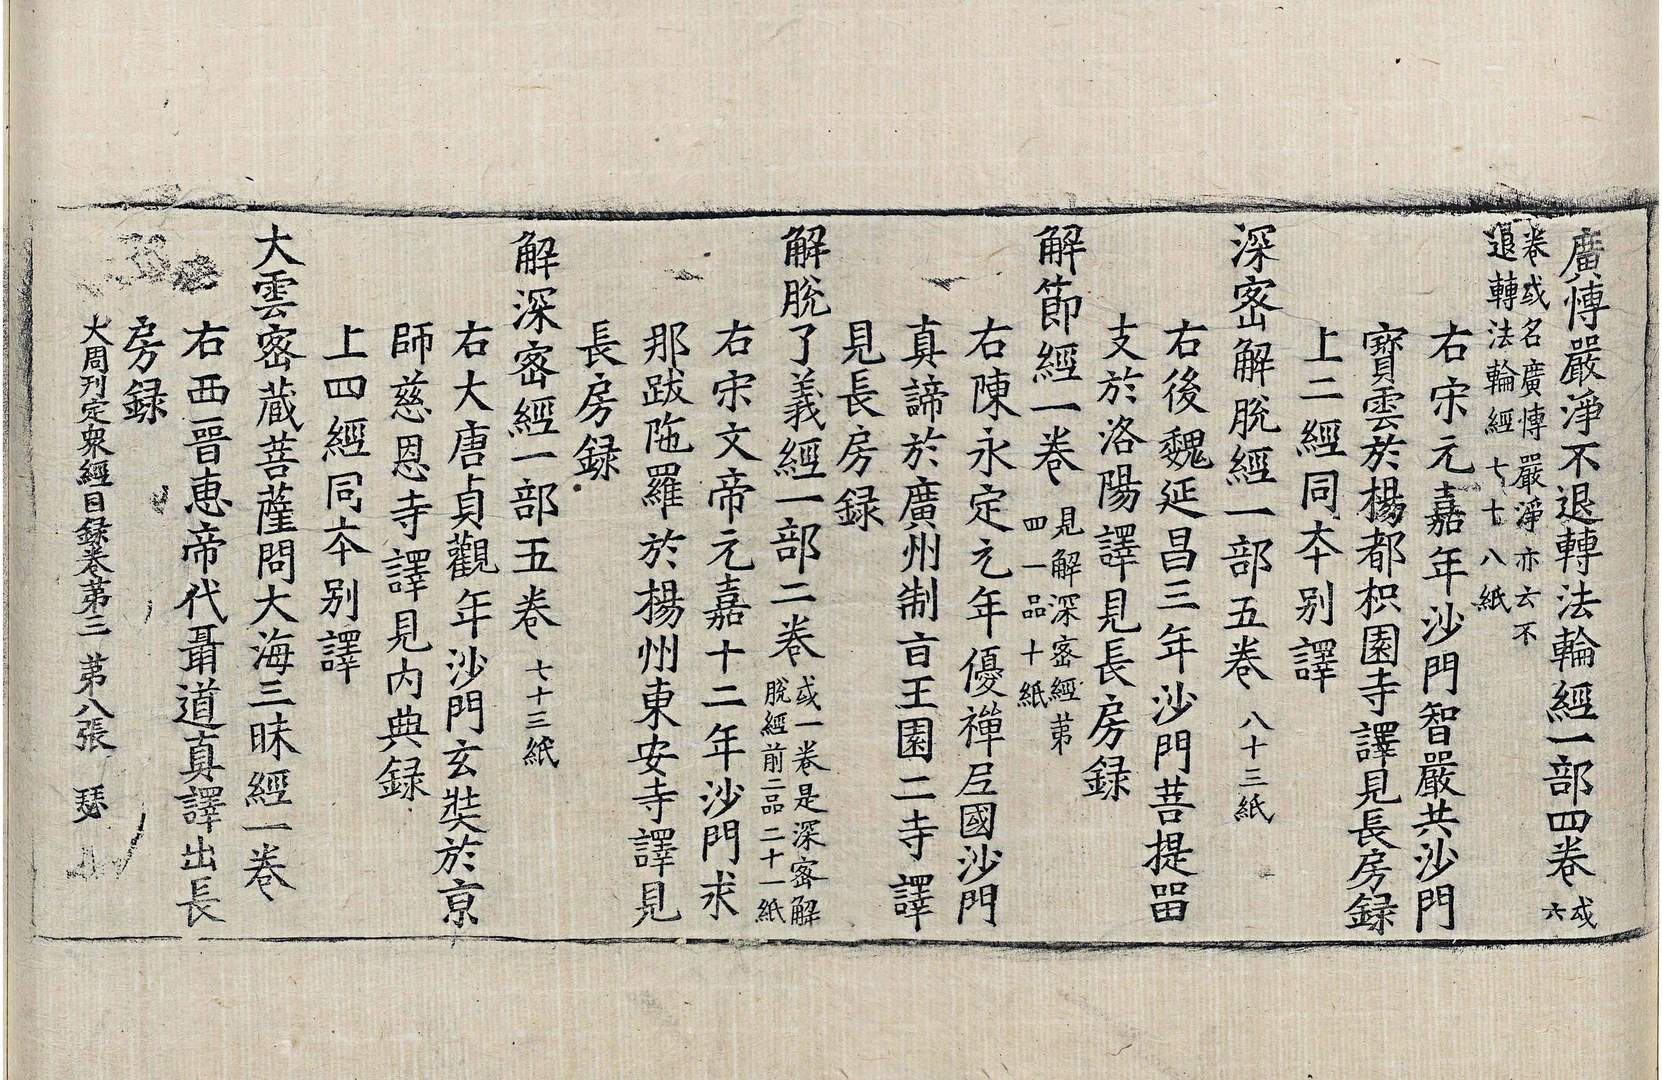 廣博嚴淨不退轉法輪經一部四卷 或六
卷或名廣博嚴淨亦云不
退轉法輪經 七十八紙
右宋元嘉年沙門智嚴共沙門
寶雲於楊都枳園寺譯見長房録
上二經同夲別譯
深密解脫經一部五卷 八十三紙
右後魏延昌三年沙門菩提畱
支於洛陽譯見長房録
解節經一卷 見解深密經苐
四一品十紙
右陳永定元年優禪𡰱國沙門
真諦於廣州制㫖王園二寺譯
見長房録
解脫了義經一部二卷 或一卷是深密解
脫經前二品二十一紙
右宋文帝元嘉十二年沙門求
那跋陁羅於楊州東安寺譯見
長房録
解深密經一部五卷 七十三紙
右大唐貞觀年沙門玄奘於京
師慈恩寺譯見内典録
上四經同夲別譯
大雲密蔵菩薩問大海三昧經一卷
右西晉恵帝代聶道真譯出長
房録
大周刊定衆經目録卷苐三 苐八張 瑟